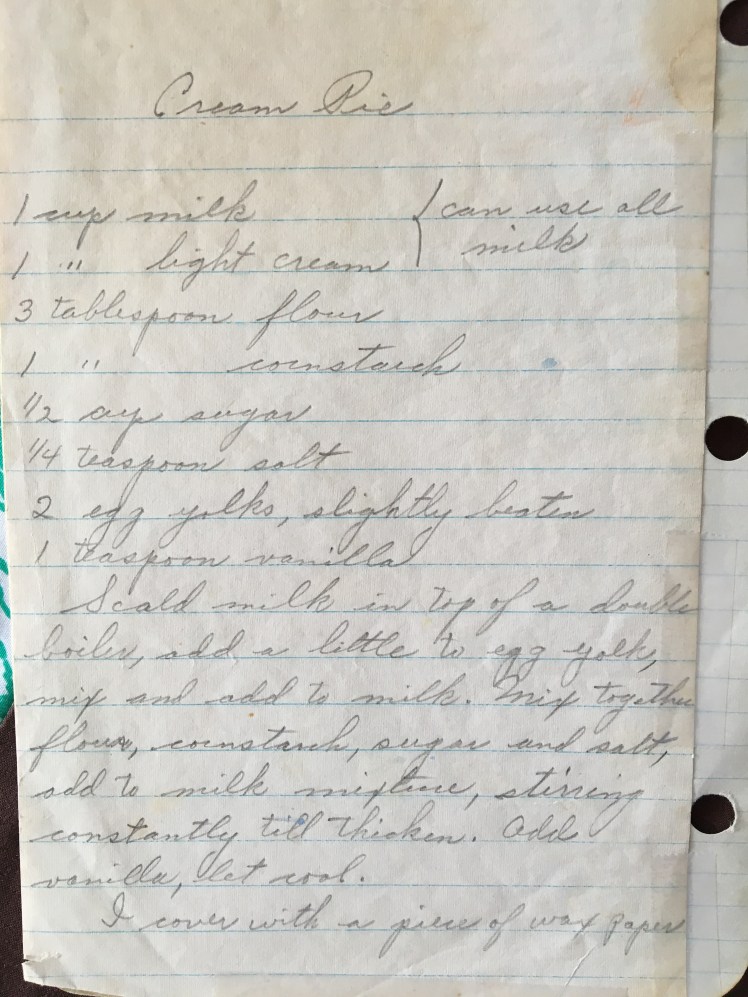 Cream Pie
1 cup milk { can use all
1 " light cream milk
3 tablespoon flour
1 " cornstarch
1/2 cup sugar
1/4 teaspoon salt
2 egg yolks, slightly beaten
1 teaspoon vanilla
Scald milk in top of a double
boiler, add a little to egg yolk,
mix and add to milk. Mix together
flour, cornstarch, sugar and salt,
add to milk mixture, stirring
constantly till thicken. Add
vanilla, let cool.
I cover with a piece of wax paper